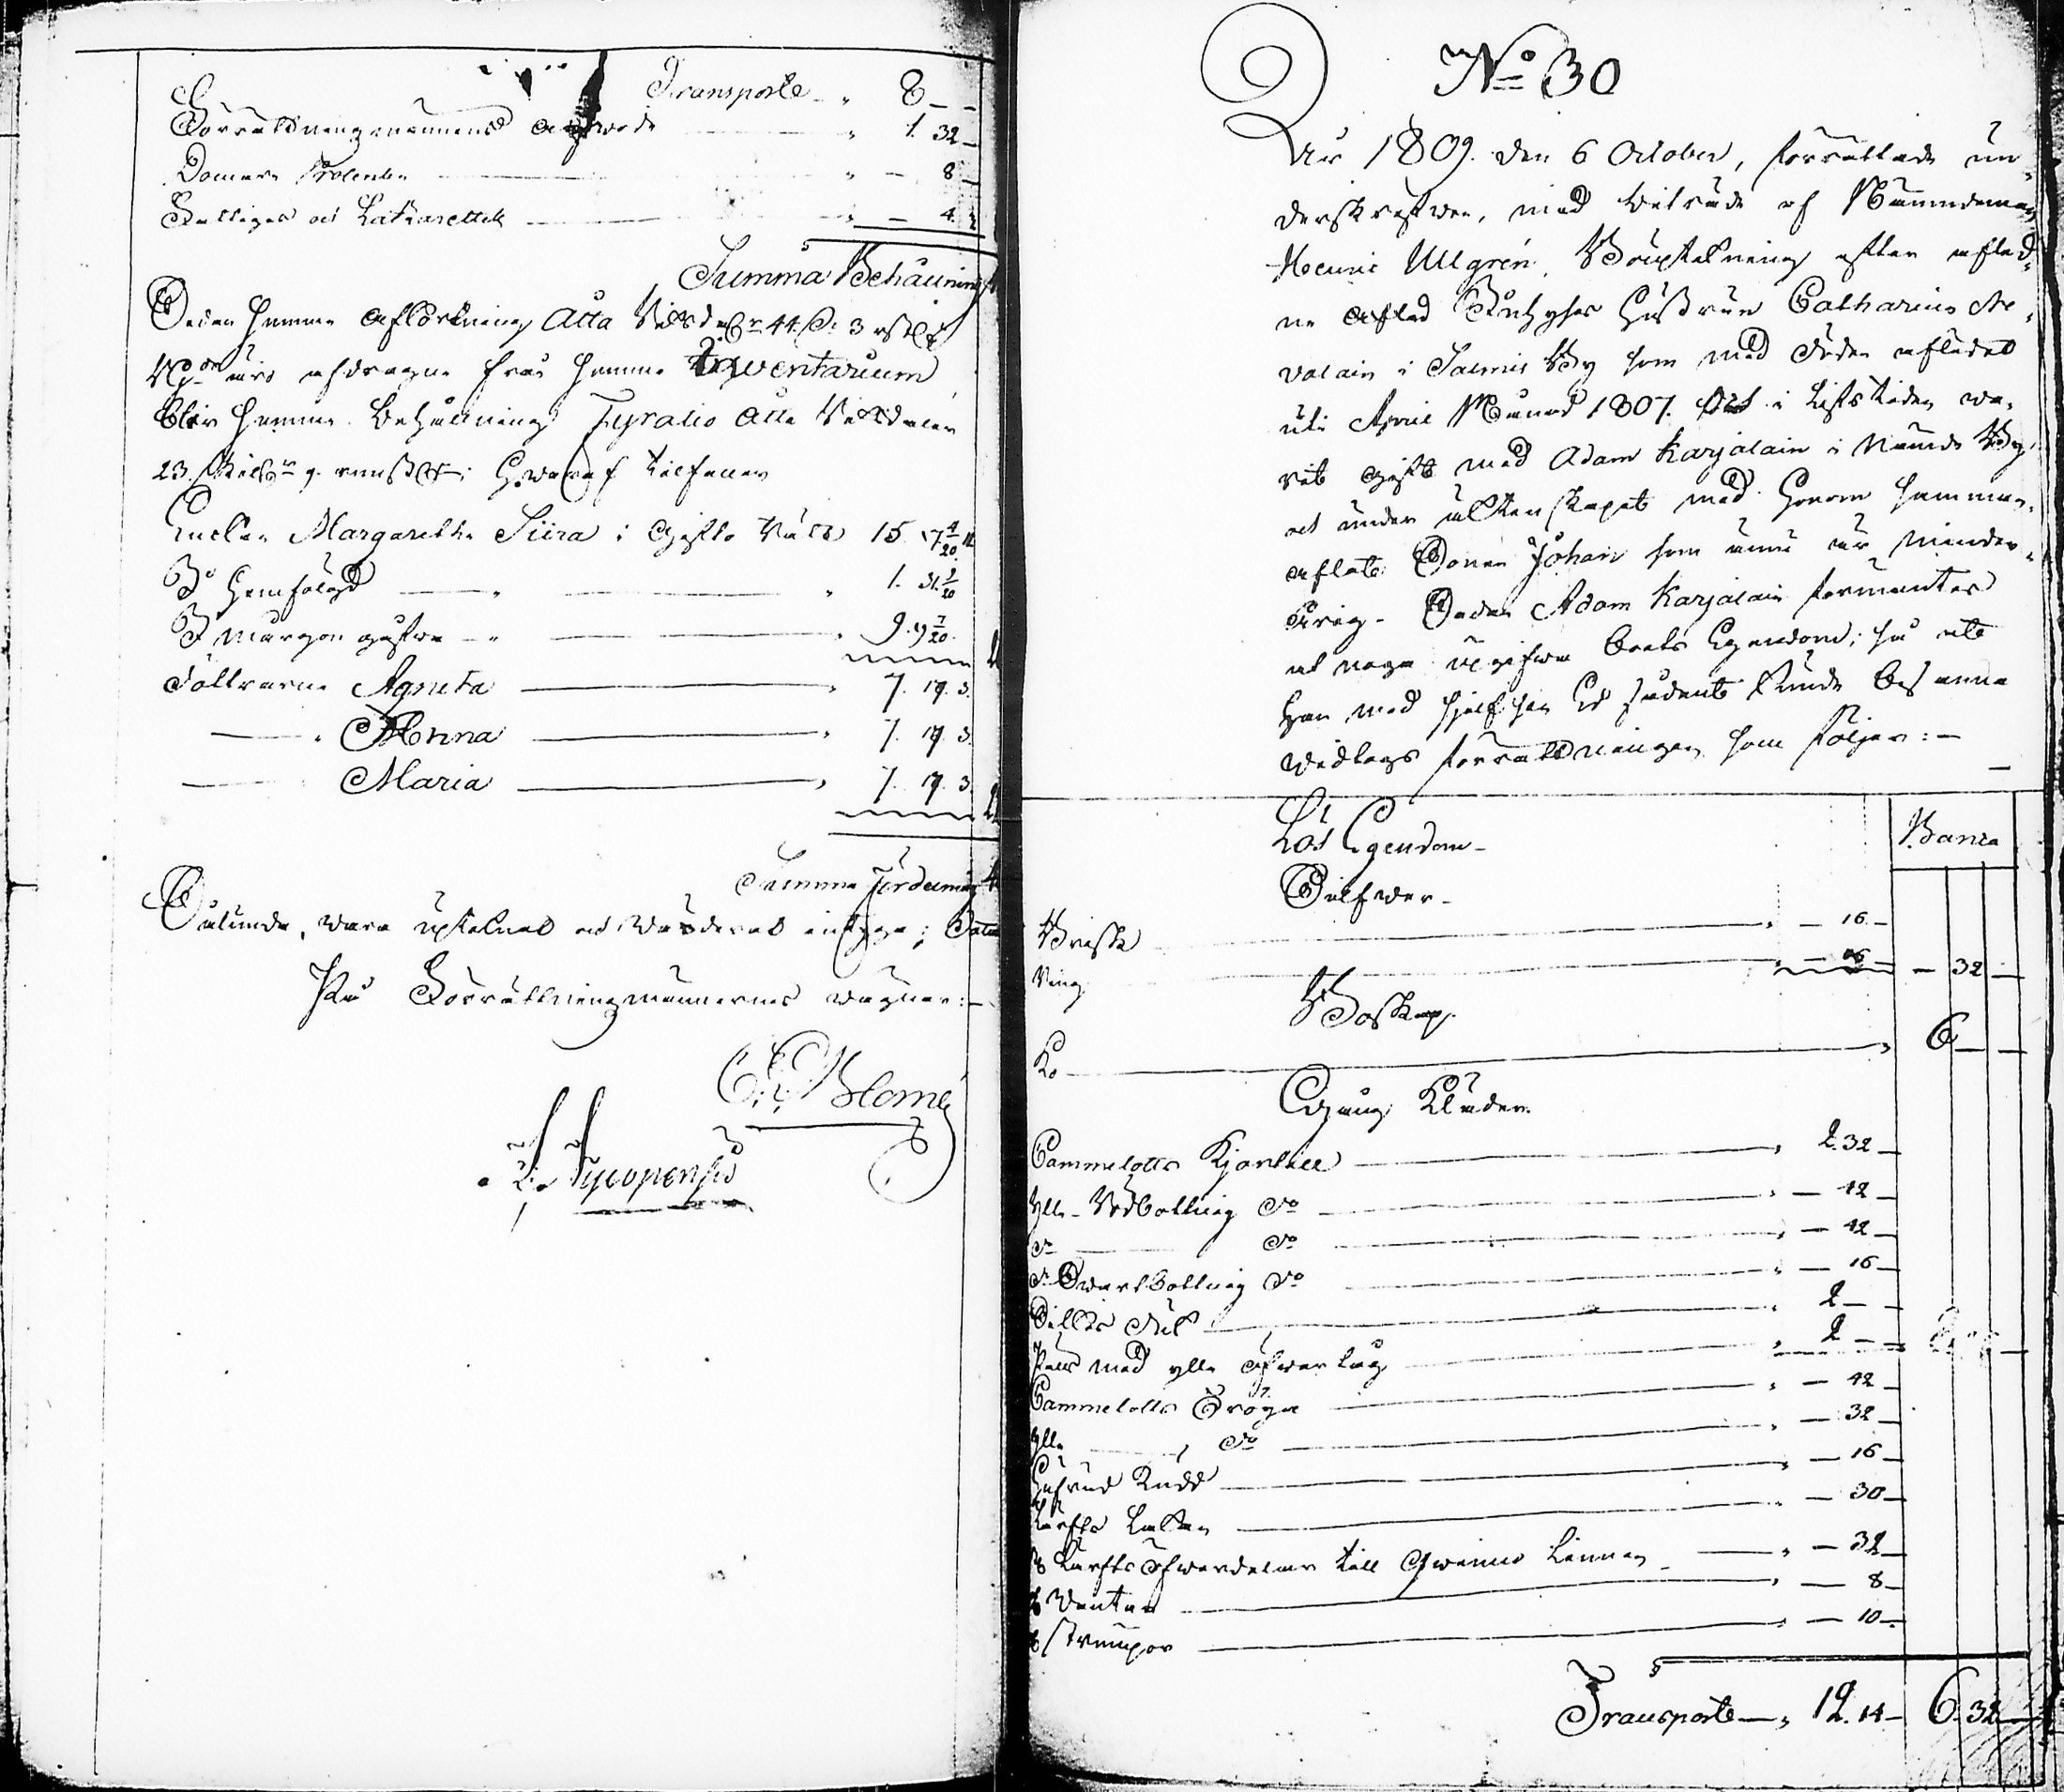 Transporte " 8 _ _
Förrättningsmännens arfwode " 1. 32 _
Domare Procenten " — 8 _
Fattiges och Lazarettet " — 4.
Summa Behållning
Sedan summa Afkortning Åtta Riksd 44 s. 3
äro afdragne från summa Inventarium
blir summa Behållning Fyratio Åtta Riksdaler
23. 9. hwaraf tilfaller
Enckan Margaretha Siira i Gifto Rätt 15. 17 4/20
D:o Hemfölgd " 1. 31 2/20
D:o Morgon gåfwa " 9. 9 7/20
Döttrarne Agneta " 7. 19. 3.
— " Anna " 7. 19. 3.
— " Maria " 7. 19. 3.
Summa Fördelning
Sålunda, wara uptecknat och wärderat intyga;
På Förrättningsmännernes wägnar:—
Blomé
No 30
År 1809. den 6 October, förrättade un-
derskrefwen, med biträde af Nämndeman
Henric Ullgrén, Bouptekning efter afled-
ne Hustrun Catharina Ne-
valain i Salmis By som med döden afledet
uti April Månad 1807. och i Lifstiden wa-
rit gift med Adam Karjalain i nämde By
och under äktenskapet med honom samman
aflat: Sonen Johan som ännu är minder-
årig. Sedan Adam Karjalain förmantes
at noga upgifwa boets Egendom; så
han med sin Ed kunde besanna
widtogs förrättningen som följer:—
Lös Egendom —
Banco
Silfwer —
Briska " — 16 —
Ring " — 16 — — 32 —
Boskap.
Ko " 6 — —
Gång Kläder.
Cammelotts Kjortell " 2. 32 —
Ylle Rödbottnig Do " — 42 —
Do Do " — 42 —
Do Swartbottnig Do " — 16 —
Silkes duk " 2 — —
Pels med ylle öfwertyg " 2 — —
Cammelotts Tröija " — 42 —
Ylle " Do " — 32 —
Hufwud Kläde " — 16 —
Lärfts Lakan " — 30 —
Lärfts öfwerdelar till Qwinns Linnen " — 32 —
Wantar " — 8 —
Strumpor " — 10 —
Transporte " 12. 14 — 6. 32 —